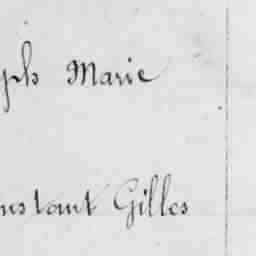 ph Marie
nstant Gilles